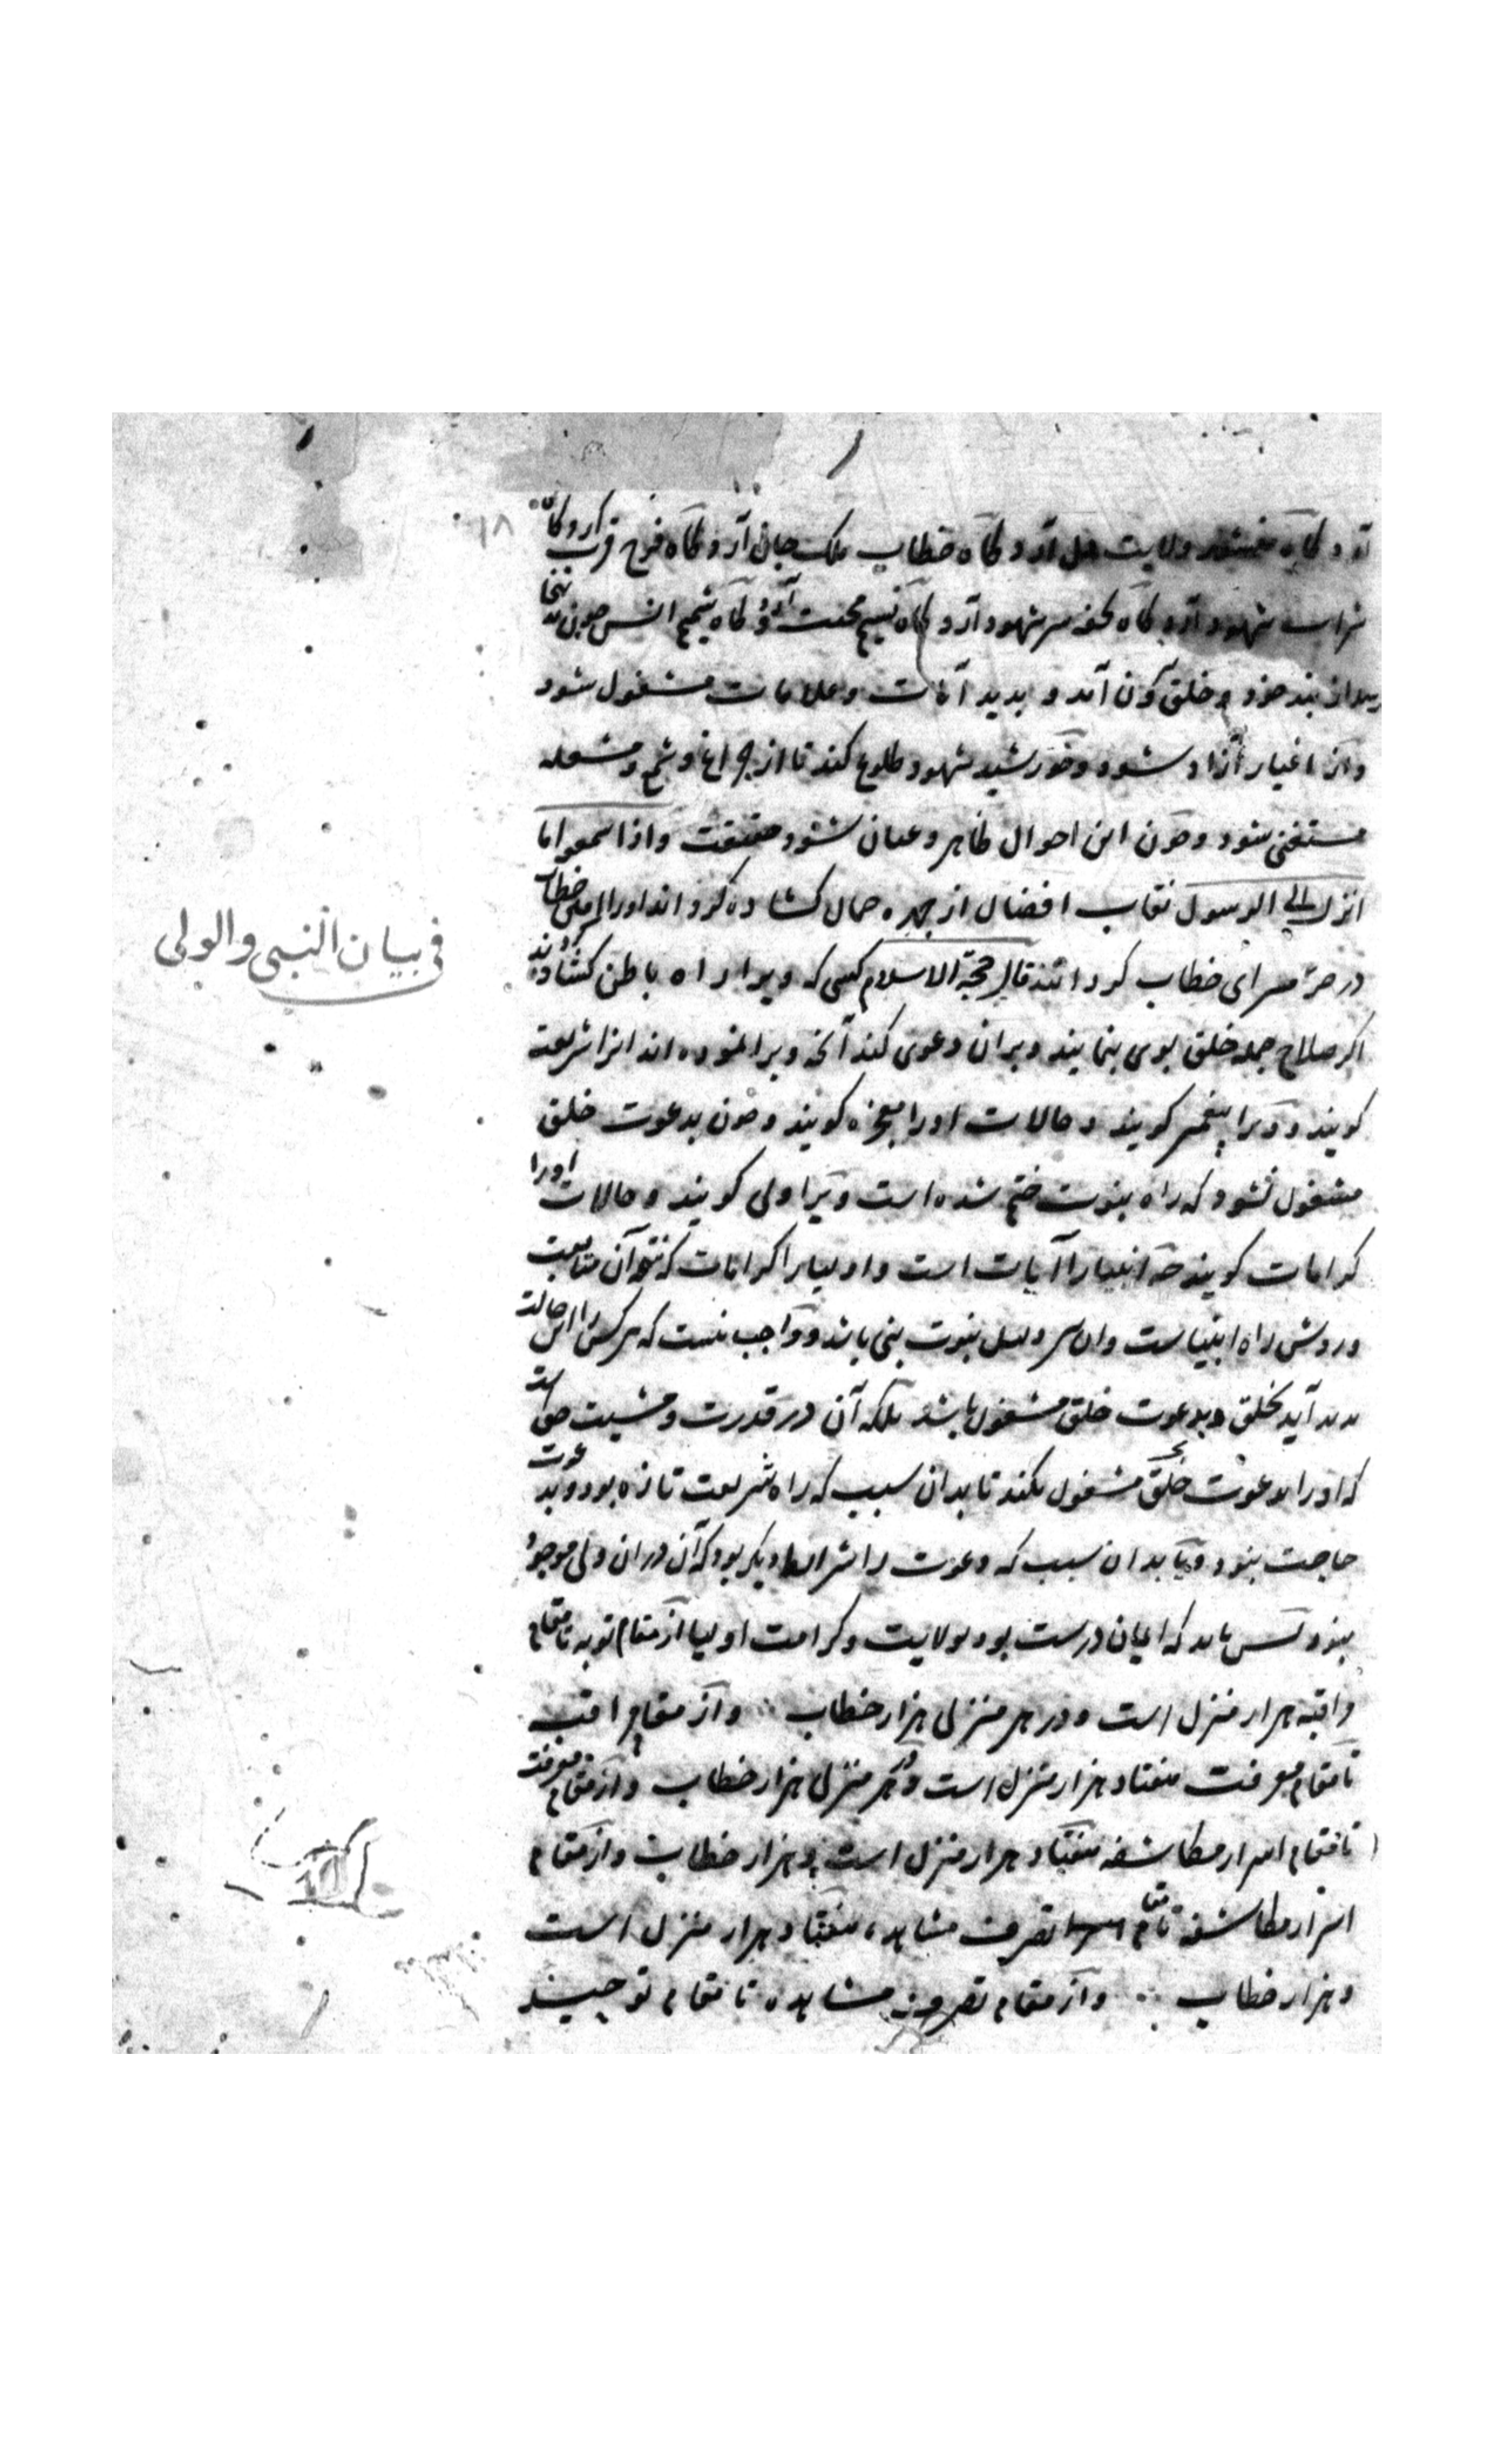 آرد و گاه منشور ولایت دل آرد و گاه خطاب ملک جان آرد و گاه فرح قرب آرد و گاه
شراب شهود آرد و گاه تحفه سر شهود آرد و گاه نسیم محبت آرد و گاه شمیم انس چون بنجا
رسد از بند خود و خلق کون آمد و بدید آیات و علامات مشغول شود
و از اغیار آزاد شود و خورشید شهود طلوع کند تا از چراغ و شمع و مشعله
مستغنی شود و چون این احوال ظاهر و عیان شود حقیقت واذا سمعوا ما
انزل الی الرسول نقاب افضال از چهره جمال کشاده گرداند اورا خطاب
در سرای خطاب گردانند قال حجة الاسلام کسی که ویرا راه باطن کشاده
اگر صلاح جمله خلق بوی بنمایند و بران دعوی کند آنچه ویرا نموده اند انرا شریعت
گویند و ویرا پیغمبر گویند و حالات اورا معجزه گویند و چون بدعوت خلق
مشغول نشود که راه نبوت ختم شده است ویرا ولی گویند و حالات اورا
کرامات گویند چه انبیارا آیات است و اولیارا کرامات که نتیجه آن متابعت
و روش راه انبیاست و ان سر دلیل نبوت نبی باشد و واجب نیست که هر کس را این حالت
بدید آید بخلق و بدعوت خلق مشغول باشد بلکه آن در قدرت و مشیت حق است
که اورا بدعوت خلق مشغول نکند تا بدان سبب که راه شریعت تازه بود و بدعوت
حاجت نبود و یا بدان سبب که دعوت را شرایط دیگر بود که آن دران ولی موجود
نبود پس باید که ایمان درست بود بولایت و کرامت اولیا از مقام توبه تا مقام
راقبه هزار منزل است و در هر منزلی هزار خطاب و از مقام راقبه
تا مقام معرفت هفتاد هزار منزل است و در هر منزلی هزار خطاب و از مقام معرفت
تا مقام اسرار مکاشفه هفتاد هزار منزل است و هزار خطاب و از مقام
اسرار مکاشفه تا مقام تصرف مشاهده هفتاد هزار منزل است
و هزار خطاب و از مقام تصرف مشاهده تا مقام توحید
فی بیان النبی والولی
۱۸